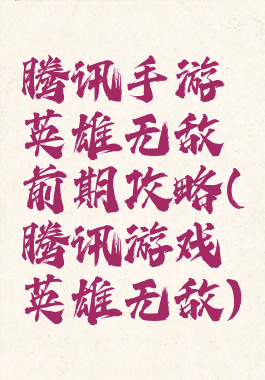 腾讯手游
英雄无敌
前期攻略(
腾讯游戏
英雄无敌)